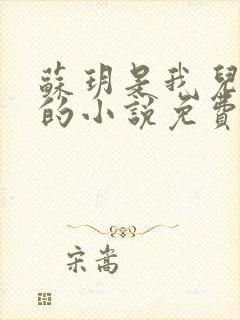 蘇玥是我兒
的小說免費
宋嵩